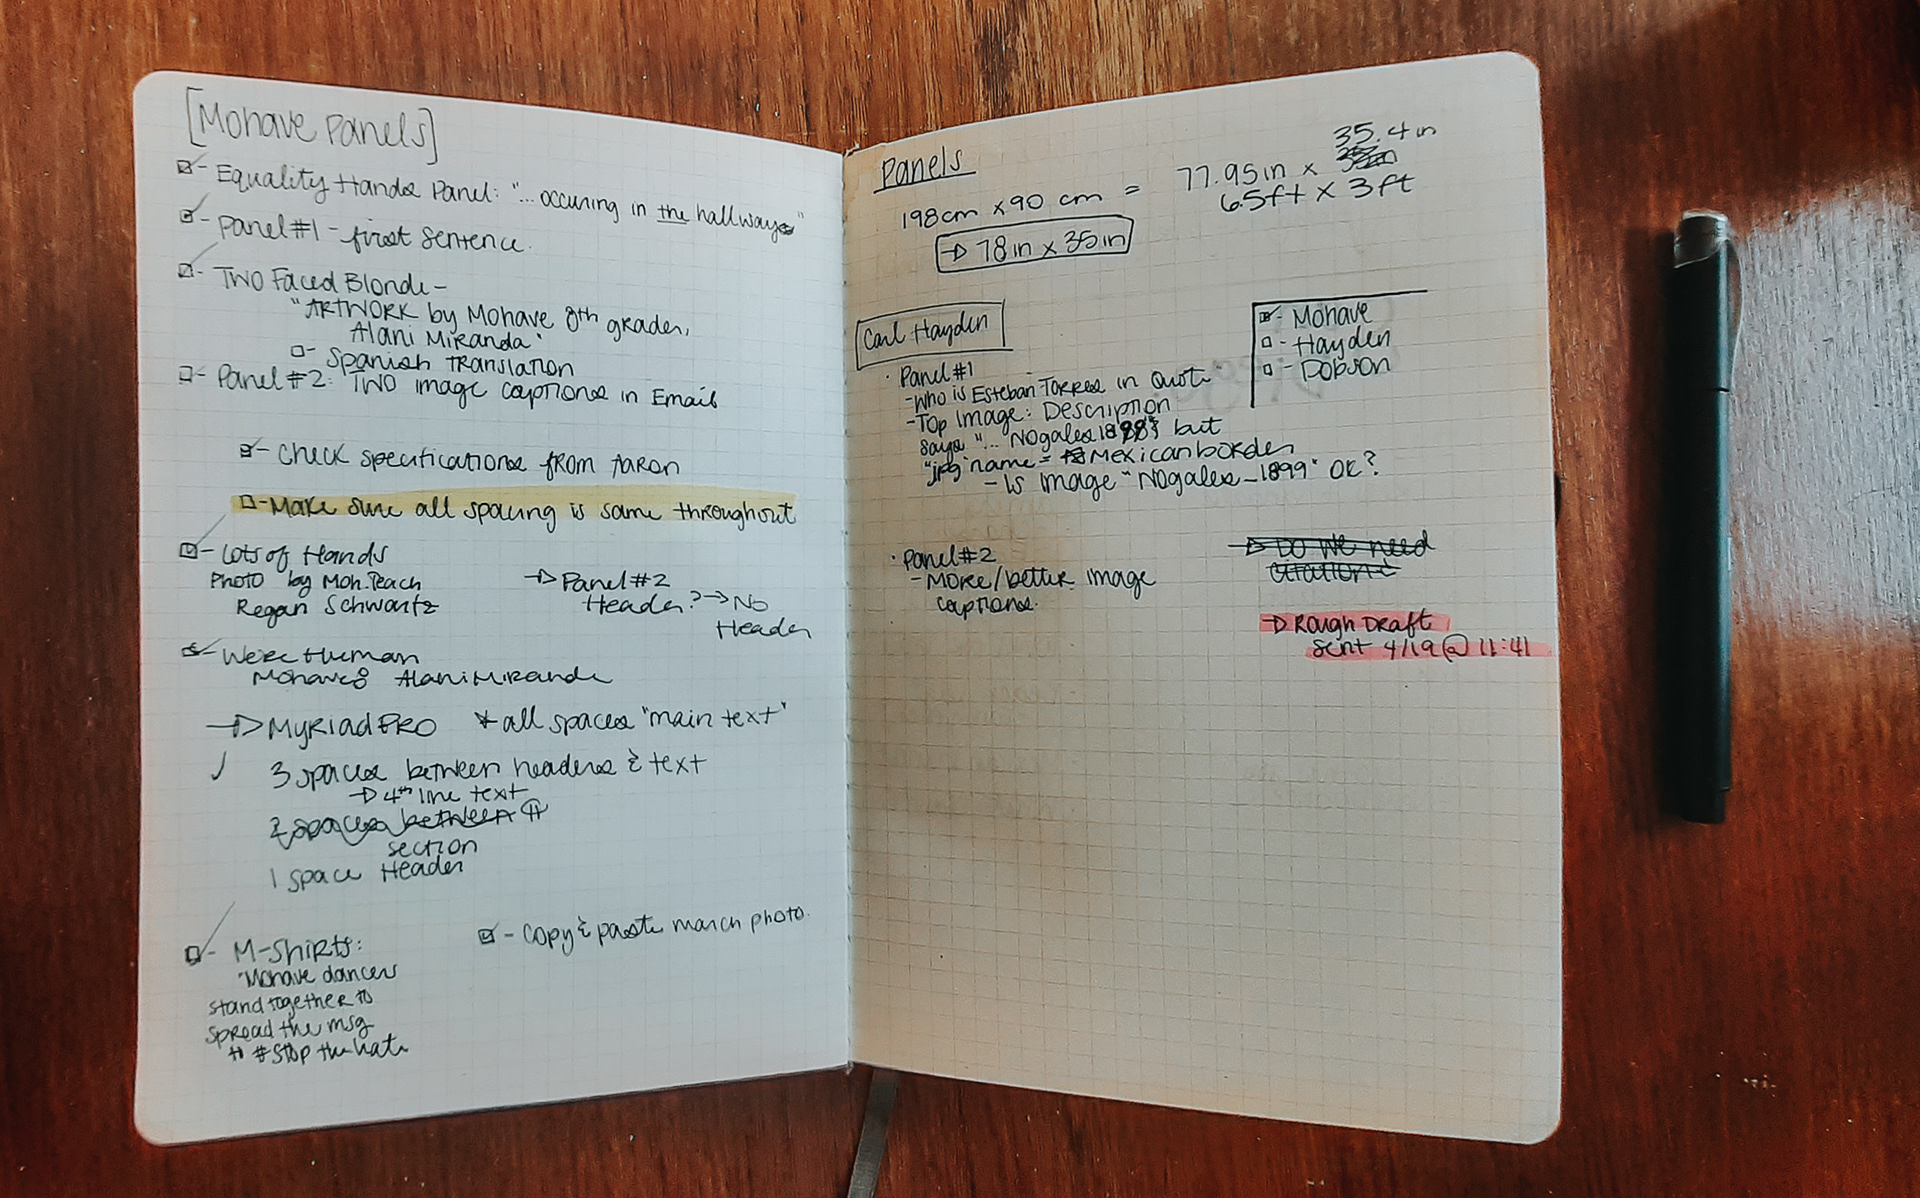 [Mohave Panels]
- Equality Hands Panel: "... occuring in the hallways"
- Panel #1 - first sentence.
- Two Faced Blonde -
"ARTWORK by Mohave 8th grader,
Alani Miranda"
- Spanish Translation
- Panel #2: Two image captions in Email
- Check specifications from Aaron
- Make sure all spacing is same throughout
- Lots of Hands
Photo by Moh. Teach
Regan Schwartz
→ Panel #2
Header? → No
Header
- We're Human
Mohave: Alani Miranda
→ Myriad PRO * all spaces "main text"
✓ 3 spaces between headers & text
→ 4th line text
2 spaces between #
section
1 space Header
- M-Shirts:
"Mohave dancers
stand together to
spread the msg
to #Stop the hate
- Copy & paste march photo.
Panels
198cm x 90 cm = 77.95in x 35.4in
6.5ft x 3ft
→ 78in x 35in
Carl Hayden
- Mohave
- Hayden
- Dobson
· Panel #1
- Who is Esteban Torres in Quote
- Top Image: Description
says "... Nogales 1898" but
"jpg" name = Mexican border
- Is image "Nogales_1899" OK?
· Panel #2
- More/better image
captions.
→ Do we need
citations
→ Rough Draft
sent 4/19 @ 11:41